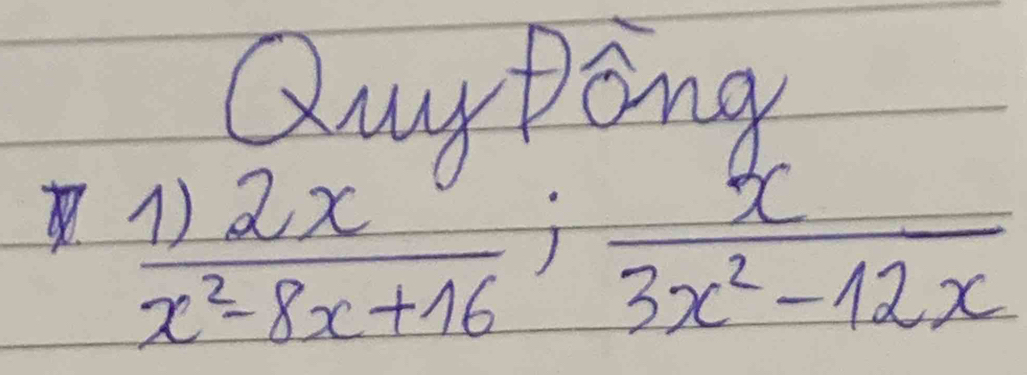 Quy Đồng
1) 2x / x² - 8x + 16 ; x / 3x² - 12x